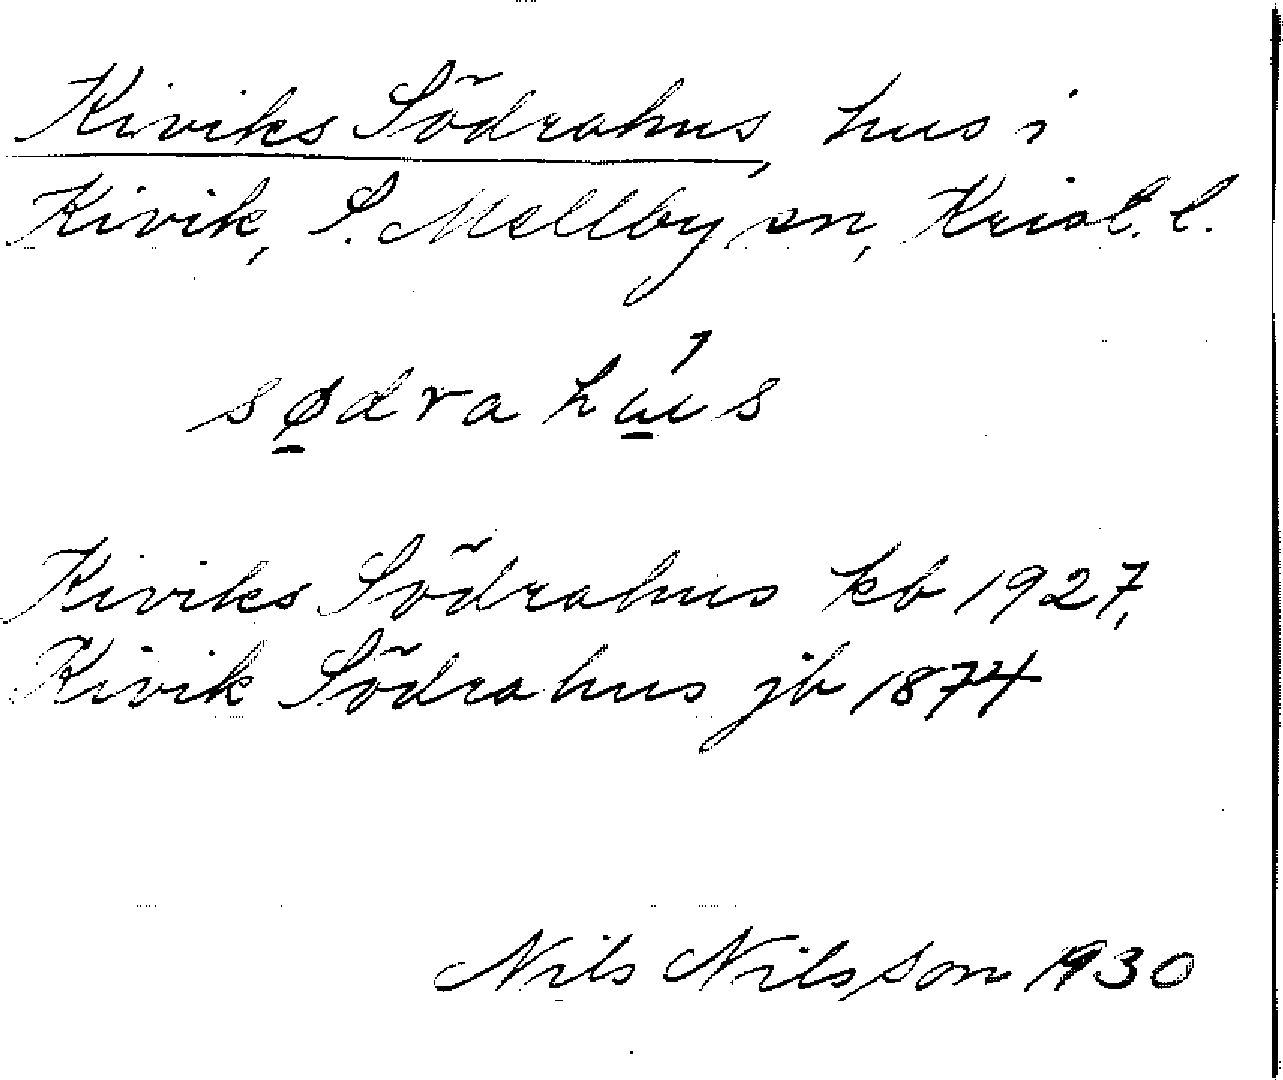 Kiviks Södrahus, hus i
Kivik, S. Mellby sn, Krist. l.
sødrahús
Kiviks Södrahus kb 1927,
Kivik Södrahus jb 1874
Nils Nilsson 1930